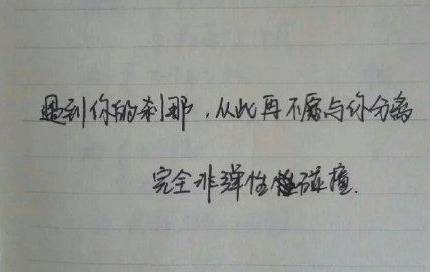 遇到你的刹那，从此再不愿与你分离
完全非弹性碰撞.